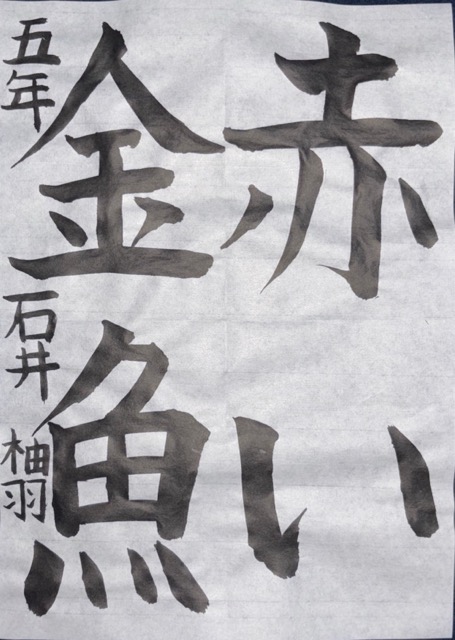 赤い
金魚
五年 石井 柚羽